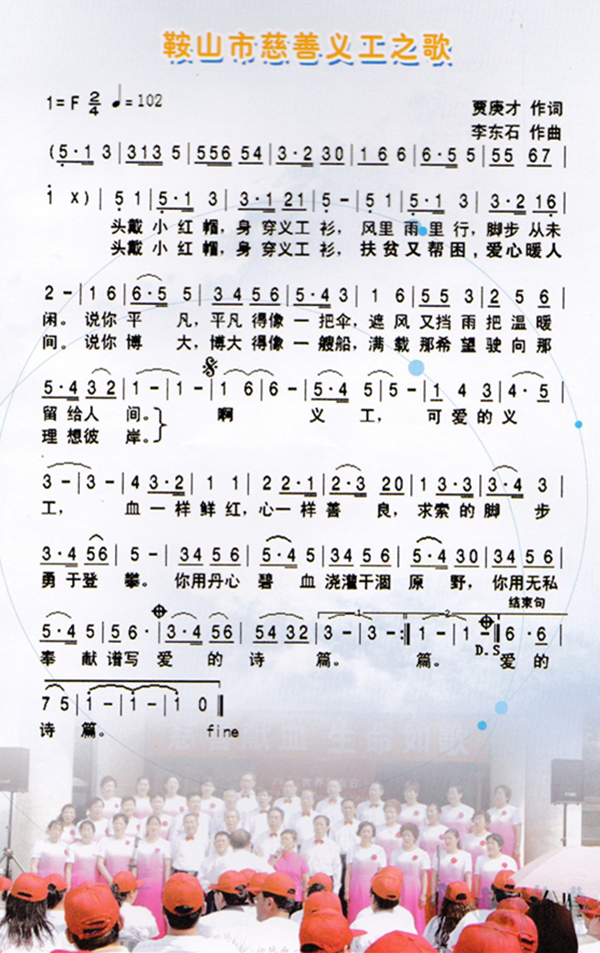 鞍山市慈善义工之歌
1=F 2/4 ♩=102
贾庚才 作词
李东石 作曲
(5·1 3|313 5|556 54|3·2 30|16 6|6·5 5|55 67|
1 X)|5 1|5·1 3|3·1 21|5 -|5 1|5·1 3|3·2 16|
头戴 小 红 帽，身 穿义工 衫， 风里 雨 里 行，脚步 从未
头戴 小 红 帽，身 穿义工 衫， 扶贫 又 帮 困，爱心 暖人
2 -|1 6|6·5 5|34 56|5·4 3|1 6|55 3|2 5 6|
闲。说你 平 凡，平凡 得像 一 把伞，遮 风 又挡 雨 把 温 暖
间。说你 博 大，博大 得像 一 艘船，满 载 那希 望 驶 向 那
5·4 32|1 -|1 -|1 6|6 -|5·4 5|5 -|1 4 3|4· 5|
留 给人 间。 啊 义 工， 可 爱 的 义
理 想彼 岸。
3 -|3 -|4 3·2|1 1|2 2·1|2·3 20|1 3·3|3·4 3|
工， 血 一 样 鲜 红，心 一 样 善 良，求 索 的 脚 步
3·4 56|5 -|34 56|5·4 5|34 56|5·4 5|5·4 30|34 56|
勇 于登 攀。 你用 丹心 碧 血 浇灌 干涸 原 野，你用 无私
结束句
5·4 5|5 6·|3·4 56|54 32|3 -|3 -:‖1 -|1 -‖6·6|
1 2
D.S
奉 献 谱写 爱 的 诗 篇。 篇。 爱的
7 5|1 -|1 -|1 0‖
诗 篇。 fine